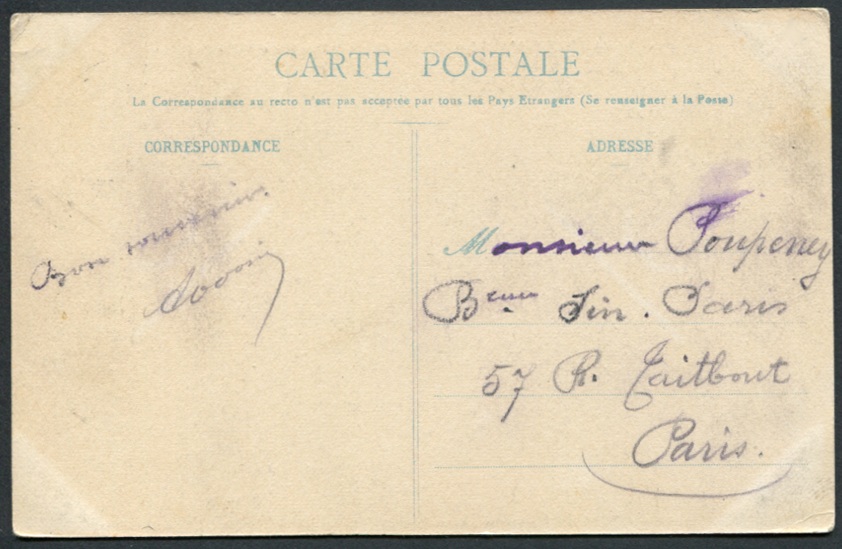 CARTE POSTALE
La Correspondance au recto n'est pas acceptée par tous les Pays Etrangers (Se renseigner à la Poste)
CORRESPONDANCE
Bon souvenir
ADRESSE
Monsieur Poupeney
Beau Fin. Paris
57 R. Taitbout
Paris.